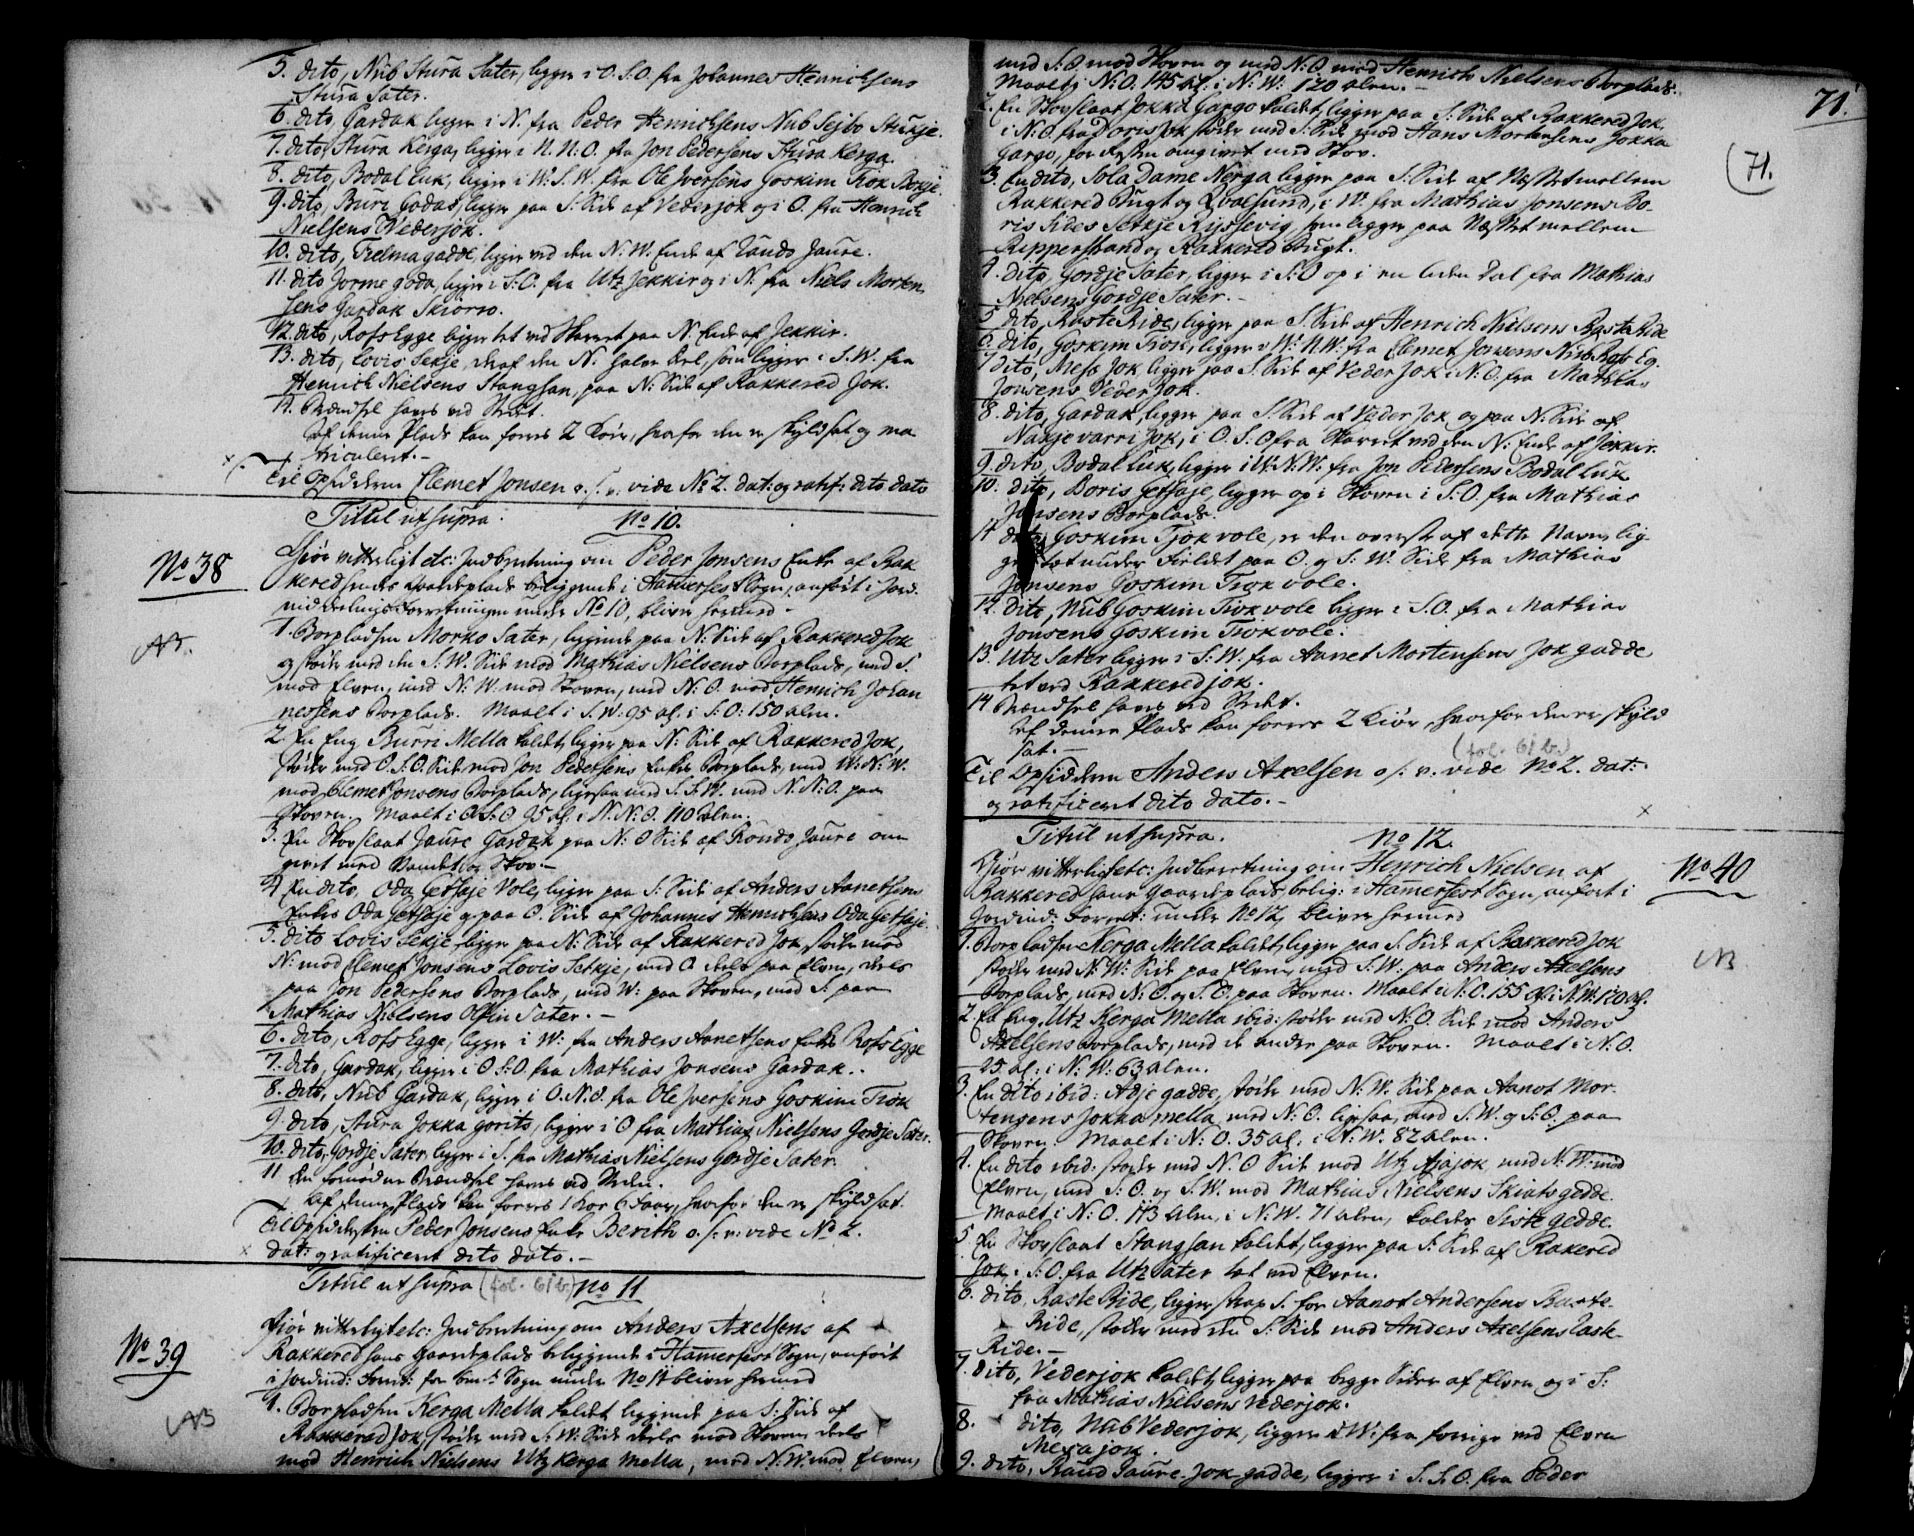 5. dito, Nub Stura Sater, ligger i O. S. O. fra Johannes Henrichsens
Stura Sater.
6. dito Gardak ligger i N. fra Peder Henrichsens Nub Sejbo Stukje.
7. dito, Stura Kerga, ligger i N. N. O. fra Jon Pedersens Stura Kerga.
8. dito, Bodal Luk, ligger i W. S. W. fra Ole Iversens Goskim Tiok Bokje
9. dito, Buri Godas, ligger paa S: Side af Vederjok og i O. fra Henrich
Nielsens Vederjok.
10. dito, Trelmagadde, ligger ved den N. W. Ende af Laudo Jaure.
11. dito Jorme goda, ligger i S: O. fra Utz Jekkir og i N. fra Niels Morten
sens Gardak Skiorro.
12. dito, Rofs Egge ligger tet ved Skaret paa N. Ende af Jekkir.
13. dito, Lovis Sekje, deraf den N. halve Deel, som ligger i S. W. fra
Henrich Nielsens Stangsan, paa N: Side af Rakkered Jok.
14. Brændsel haves ved Stedet.
Af denne Plads kan fores 2 Kiør, hvorfor den er skyldsat og ma
triculeret.-
Til Opsidderen Clemet Jonsen o. s. v. vide No 2. dat: og ratif: dito dato
Titul ut supra. No 10.
No 38
Giør vitterligt etc: Indberetning om Peder Jonsens Enke af Rak
kered hendes Gaardeplads beliggende i Hamerfest Sogn, anført i Jord
inddelings Forretningen under No 10, bliver hermed -
NB.
1. Boepladsen Morko Sater, liggende paa N: Side af Rakkered Jok
og støder med den S. W. Side mod Mathias Nielsens Boeplads, med S
mod Elven, med N: W. mod Skoven, med N: O. mod Henrich Johan
nessens Boeplads. Maalt i S. W: 95 al. i S: O: 150 alen.
2. En Eng Burri Mella kaldet, ligger paa N: Side af Rakkered Jok,
støder med O. S. O. Side mod Jon Pedersens Enkes Boeplads, med W: N: W.
mod Clemet Jonsens Boeplads, ligesaa med S. S. W. med N. N: O. paa
Skoven. Maalt i O. S: O. 95 al. i N. N: O. 110 Alen.
3. En Skovslaat Jaure Gardak paa N: O Side af Rondo Jaure om
givet med Vandet og Skov. -
4. En dito, Oda Getsaje Vole, ligger paa S: Side af Anders Aanetsens
Enkes Oda Getsaje og paa O. Side af Johannes Henrichsens Oda Getsaje.
5. dito Lovis Sekje ligger paa N: Side af Rakkered Jok, støder mod
N: mod Clemet Jonsens Lovis Sekje, med O. deels paa Elven, deels
paa Jon Pedersens Boeplads, med W: paa Skoven, med S: paa
Mathias Nielsens Olkin Sater. -
6. dito, Rofs Egge, ligger i W: fra Anders Aanetsens Enkes Rofs Egge
7. dito, Gardak, ligger i O S: O fra Mathias Jonsens Gardak.
8. dito, Nub Gardak, ligger i O. N: O. fra Ole Iversens Goskim Tiok
9. dito, Stura Jokka gorito, ligger i O fra Mathias Nielsens Gordje Sater.
10. dito, Gordje Sater ligger i S. fra Mathias Nielsens Gordje Sater.
11 Den fornødne Brændsel haves ved Stedet.
Af denne Plads kan fores 1 Koe 6 Faar, hvorfor den er skyldsat.
Til Opsidersken Peder Jonsens Enke Berith o. s: v: vide No 2.
dat: og ratificeret dito dato. -
Titul ut supra (fol. 61b.) No 11
No 39
Giør vitterligt etc: Indberetning om Anders Axelsens af
Rakkered hans Gaardeplads beliggende i Hamerfest Sogn, anført
i Jordind: Forret: for bem:te Sogn under No 11 bliver hermed
NB
1. Boepladsen Kerga Mella kaldet liggende paa S: Side af
Rakkered Jok, støder med S. W. Side deels mod Skoven, deels
mod Henrich Nielsens Utz Kerga Mella, med N. W. mod Elven,
71.
(71.)
med S: O mod Skoven og med N: O mod Henrich Nielsens Boeplads.
Maalt i N: O. 145 al. i N: W: 120 Alen. -
2. En Skovslaat Jokka Gargo kaldet, ligger paa S: Side af Rakkered Jok,
i N: O fra Doris Jok støder med S: Side mod Hans Mortensens Jokka
Gargo, for Resten omgivet med Skov.
3. En dito, Sola Dame Nerga ligger paa S: Side af Næsset mellem
Rakkered Bugt og Qvalsund, i W. fra Mathias Jonsens Bo-
ris Sibes Serkje Kyssevig, som ligger paa Næsset mellem
Repperstrand og Rakkered Bugt.
4. dito, Gordje Sater, ligger i S: O op i en liden Dal fra Mathias
Nielsens Gordje Sater. -
5. dito, Raste Ride, ligger paa S. Side af Henrich Nielsens Rasta Ride
6. dito, Goskim Tiok, ligger i W: N. W: fra Clemet Jonsens Nub Rofs Eg.
7. dito, Mess Jok ligger paa S. Side af Veder Jok i N: O. fra Mathias
Jonsens Veder Jok.
8. dito, Gardak, ligger paa S. Side af Veder Jok og paa N: Side af
Nakje varri Jok, i O. S: O fra Skarret ved den N: Ende af Jekkir.
9. dito, Bodal Luk, ligger i W: N: W: fra Jon Pedersens Bodal Luk
10. dito, Boris Getsaje, ligger op i Skoven i S: O. fra Mathias
Jonsens Boeplads.
11 dito, Goskim Tiok vole, er den øverste af dette Navn, lig-
ger tet under Fieldet paa O. og S: W. Side fra Mathias
Jonsens Goskim Tiok vole.
12. dito, Nub Goskim Tiok vole ligger i S: O. fra Mathias
Jonsens Goskim Tiok vole.
13. Utz Sater ligger i S: W. fra Aanet Mortensens Jok gadde
tet ved Rakkered jok.
14 Brændsel haves ved Stedet.
Af denne Plads kan fores 2 Kiør, hvorfor den er skyld
sat. -
(fol. 61b.)
Til Opsidderen Anders Axelsen o. s: v: vide No 2. dat:
og ratificeret dito dato. -
Titul ut supra. No 12.
No 40
Giør vitterligt etc: Indberetning om Henrich Nielsen af
Rakkered hans Gaardeplads belig: i Hamerfest Sogn, anført i
Jordind: Forret: under No 12, bliver hermed
NB
1. Boepladsen Kerga Mella kaldet, ligger paa S. Side af Rakkered Jok
støder med N: W: Side paa Elven, med S: W. paa Anders Axelsens
Boeplads, med N: O. og S: O. paa Skoven. Maalt i N: O. 155 al. i N. W. 120 al.
2. En Eng, Utz Kerga Mella ibid: støder med N: O. Side mod Anders
Axelsens Boeplads, med de andre paa Skoven. Maalt i N: O.
25 al: i N: W: 63 Alen.
3. En dito ibid: Adje gadde, støder med N: W. Side paa Aanot Mor-
tensens Jokka mella, med N: O. ligesaa, med S: W. og S: O. paa
Skoven. Maalt i N: O. 35 al: i N: W. 82 Alen.
4. En dito ibid: støder med N. O Side mod Utz Ajajok, med N: W. mod
Elven, med S: O. og S. W. mod Mathias Nielsens Skiats gedde.
Maalt i N: O. 113 Alen, i N: W. 71 Alen, kaldes Siste gedde.
5. En Skovslaat Stangsan kaldet, ligger paa S: Side af Rakered
Jok, i S: O. fra Utz Sater tet ved Elven.
6. dito, Raste Ride, ligger strax S. for Aanot Andersens Raste
Ride, støder med den S: Side mod Anders Axelsens Raste-
Ride. -
7. dito, Vederjok kaldet, ligger paa begge Sider af Elven og i S:
fra Mathias Nielsens Vederjok.
8. dito, Nub Vederjok, ligger i W: fra forrige ved Elven
Mexajok.
9. dito, Raud Jaure Jok gadde, ligger i S. S. O. fra Peder